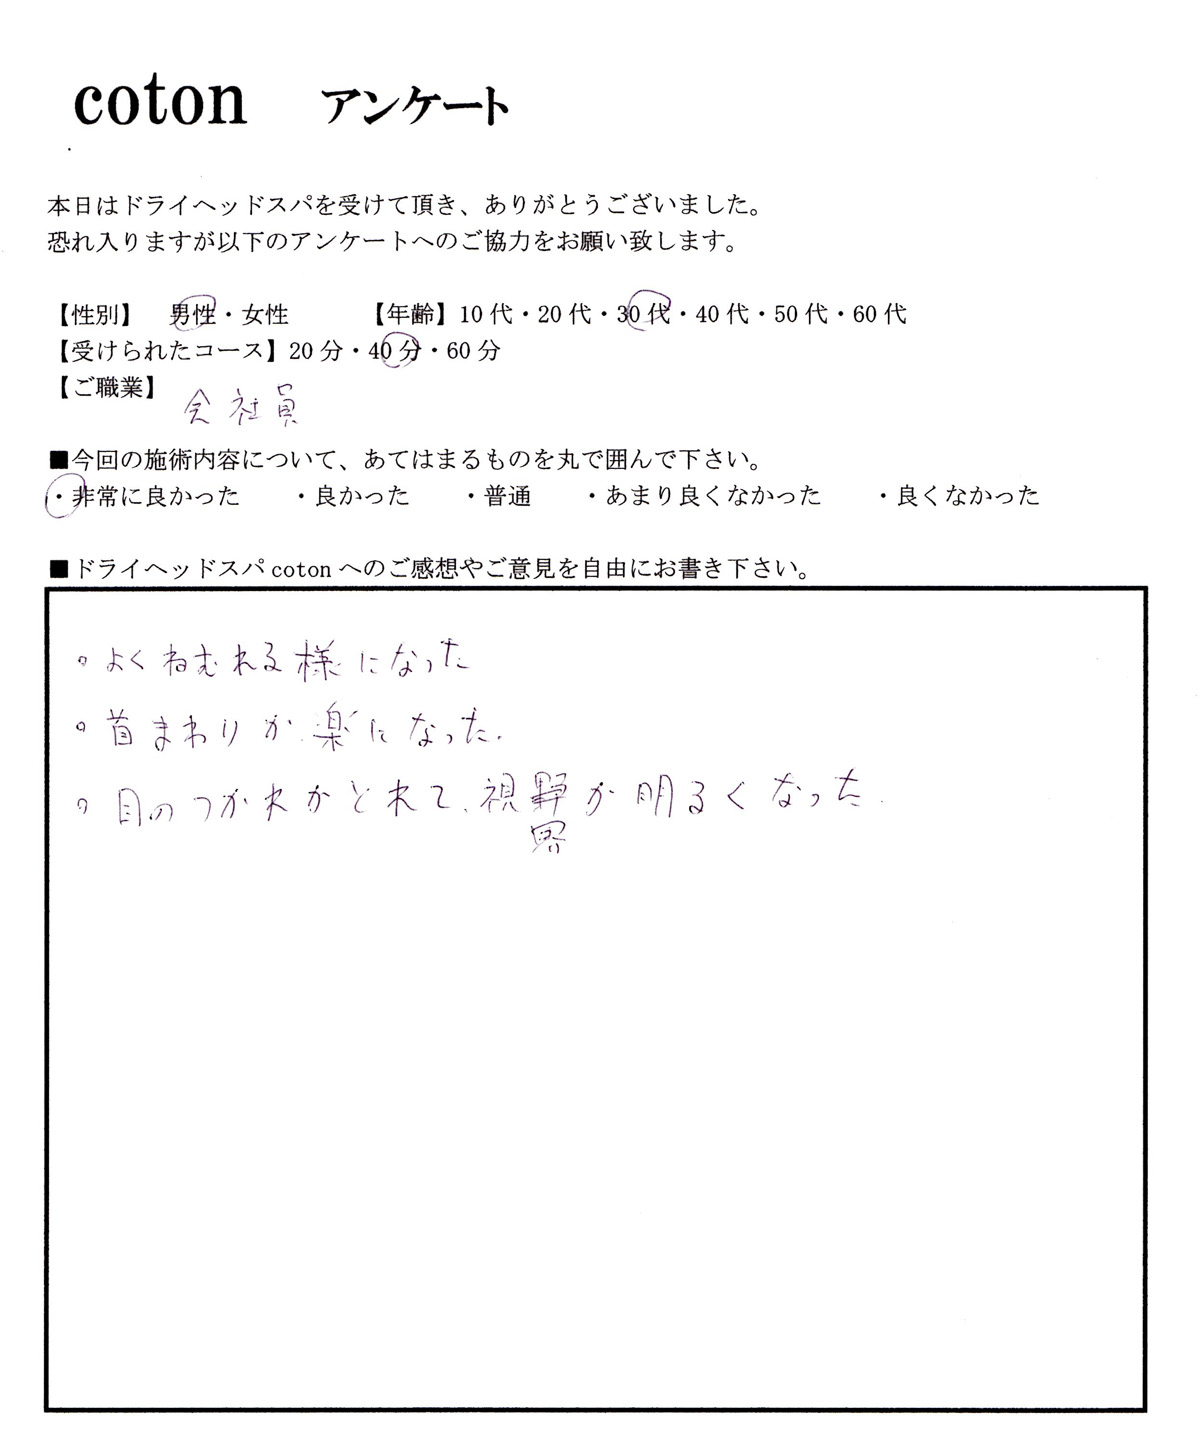 coton アンケート
本日はドライヘッドスパを受けて頂き、ありがとうございました。
恐れ入りますが以下のアンケートへのご協力をお願い致します。
【性別】 男性・女性 【年齢】10代・20代・30代・40代・50代・60代
【受けられたコース】20分・40分・60分
【ご職業】
会社員
■今回の施術内容について、あてはまるものを丸で囲んで下さい。
・非常に良かった ・良かった ・普通 ・あまり良くなかった ・良くなかった
■ドライヘッドスパcotonへのご感想やご意見を自由にお書き下さい。
。よくねむれる様になった
。首まわりが楽になった.
。目のつかれがとれて、視野が明るくなった.
界